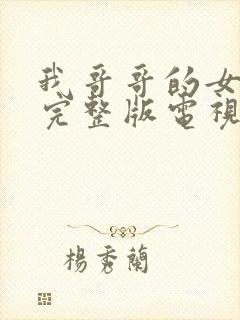 我哥哥的女
完整版電視
楊秀蘭